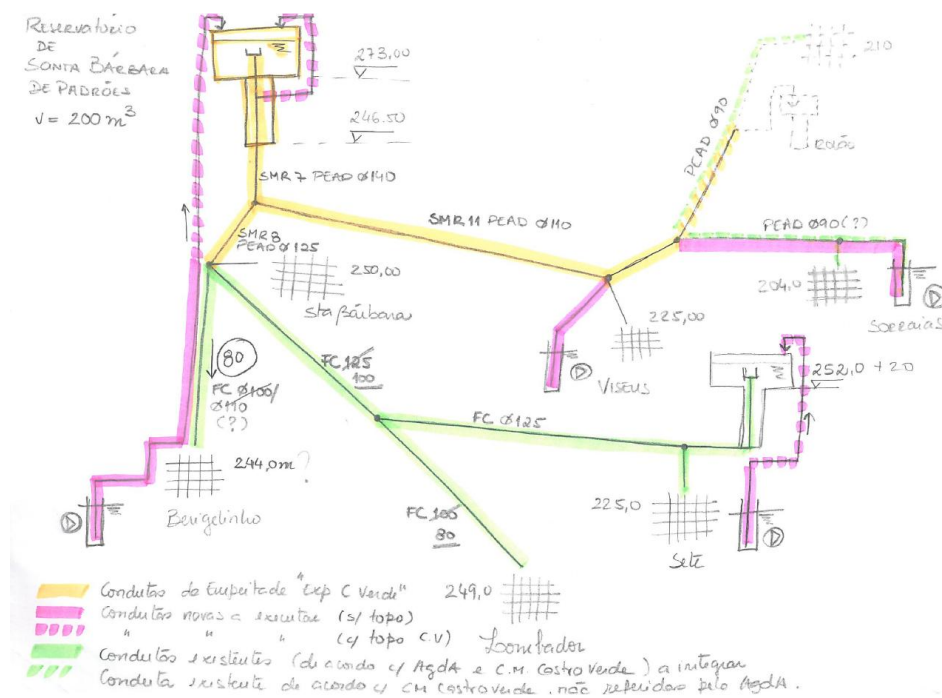 RESERVATÓRIO
DE
SONTA BÁRBARA
DE PADRÕES
V = 200 m³
273,00
246.50
SMR 7 PEAD Ø140
SMR8
PEAD Ø125
SMR 11 PEAD Ø110
PEAD Ø90
210
ROLÃO
PEAD Ø90(?)
204.0
SORRAIAS
250,00
Sta Bárbara
225,00
VISEUS
252,0 + 20
80
FC Ø100/
Ø110
(?)
FC 125
100
FC Ø125
244,0m?
Berigelinho
FC 100
80
225,0
Sete
249,0
Lombador
Condutas da Empeitada "Exp C Verde"
Condutas novas a executar (s/ topo)
" " " (c/ topo C.V)
Condutas existentes (de acordo c/ AgdA e C.M. Castro Verde) a integrar
Conduta existente de acordo c/ CM Castro Verde, não referidas pelo AgdA.